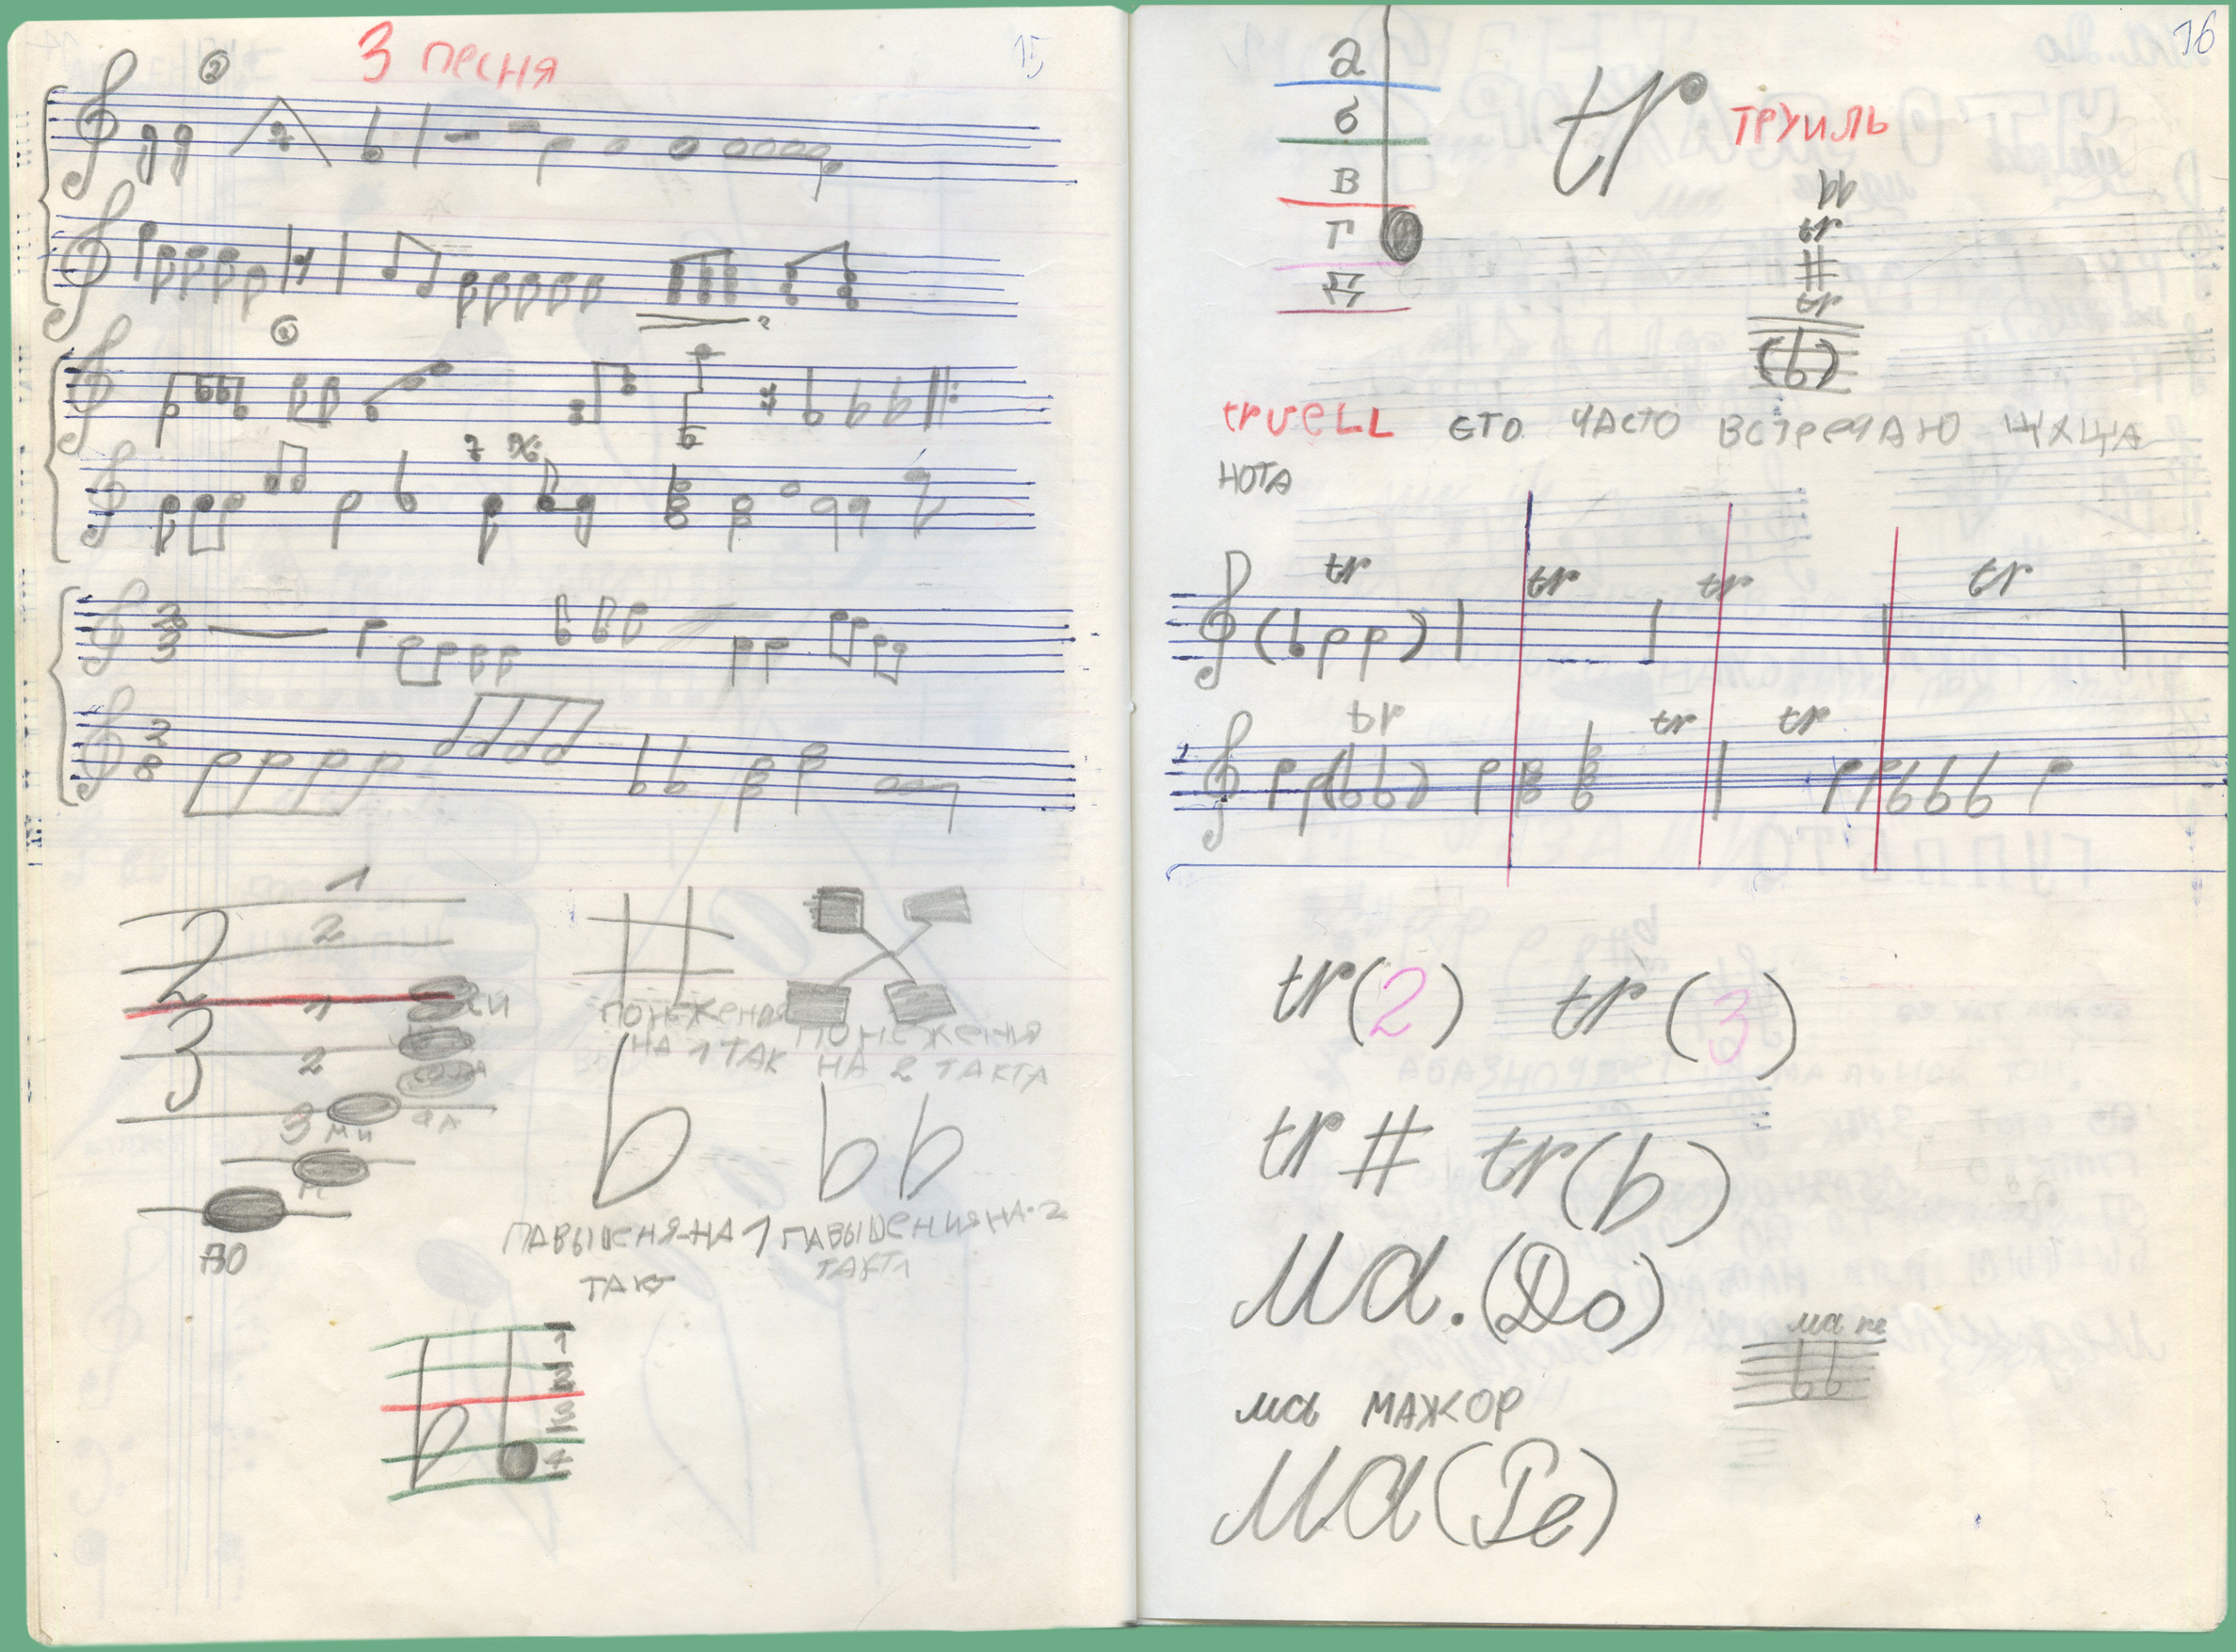 3 песня
15
1
2
1
2
3
ми
до
понежения
на 1 так
понежения
на 2 такта
павышеня-на 1
такт
павышения на 2
такта
1
2
3
4
16
а
б
в
г
д
tr труиль
bb
tr
#
tr
(b)
truell ето часто встречаю щхща
нота
tr tr tr tr
tr tr tr
tr(2) tr(3)
tr# tr(b)
Ма.(До)
ма ре
ма мажор
Ма(Ре)